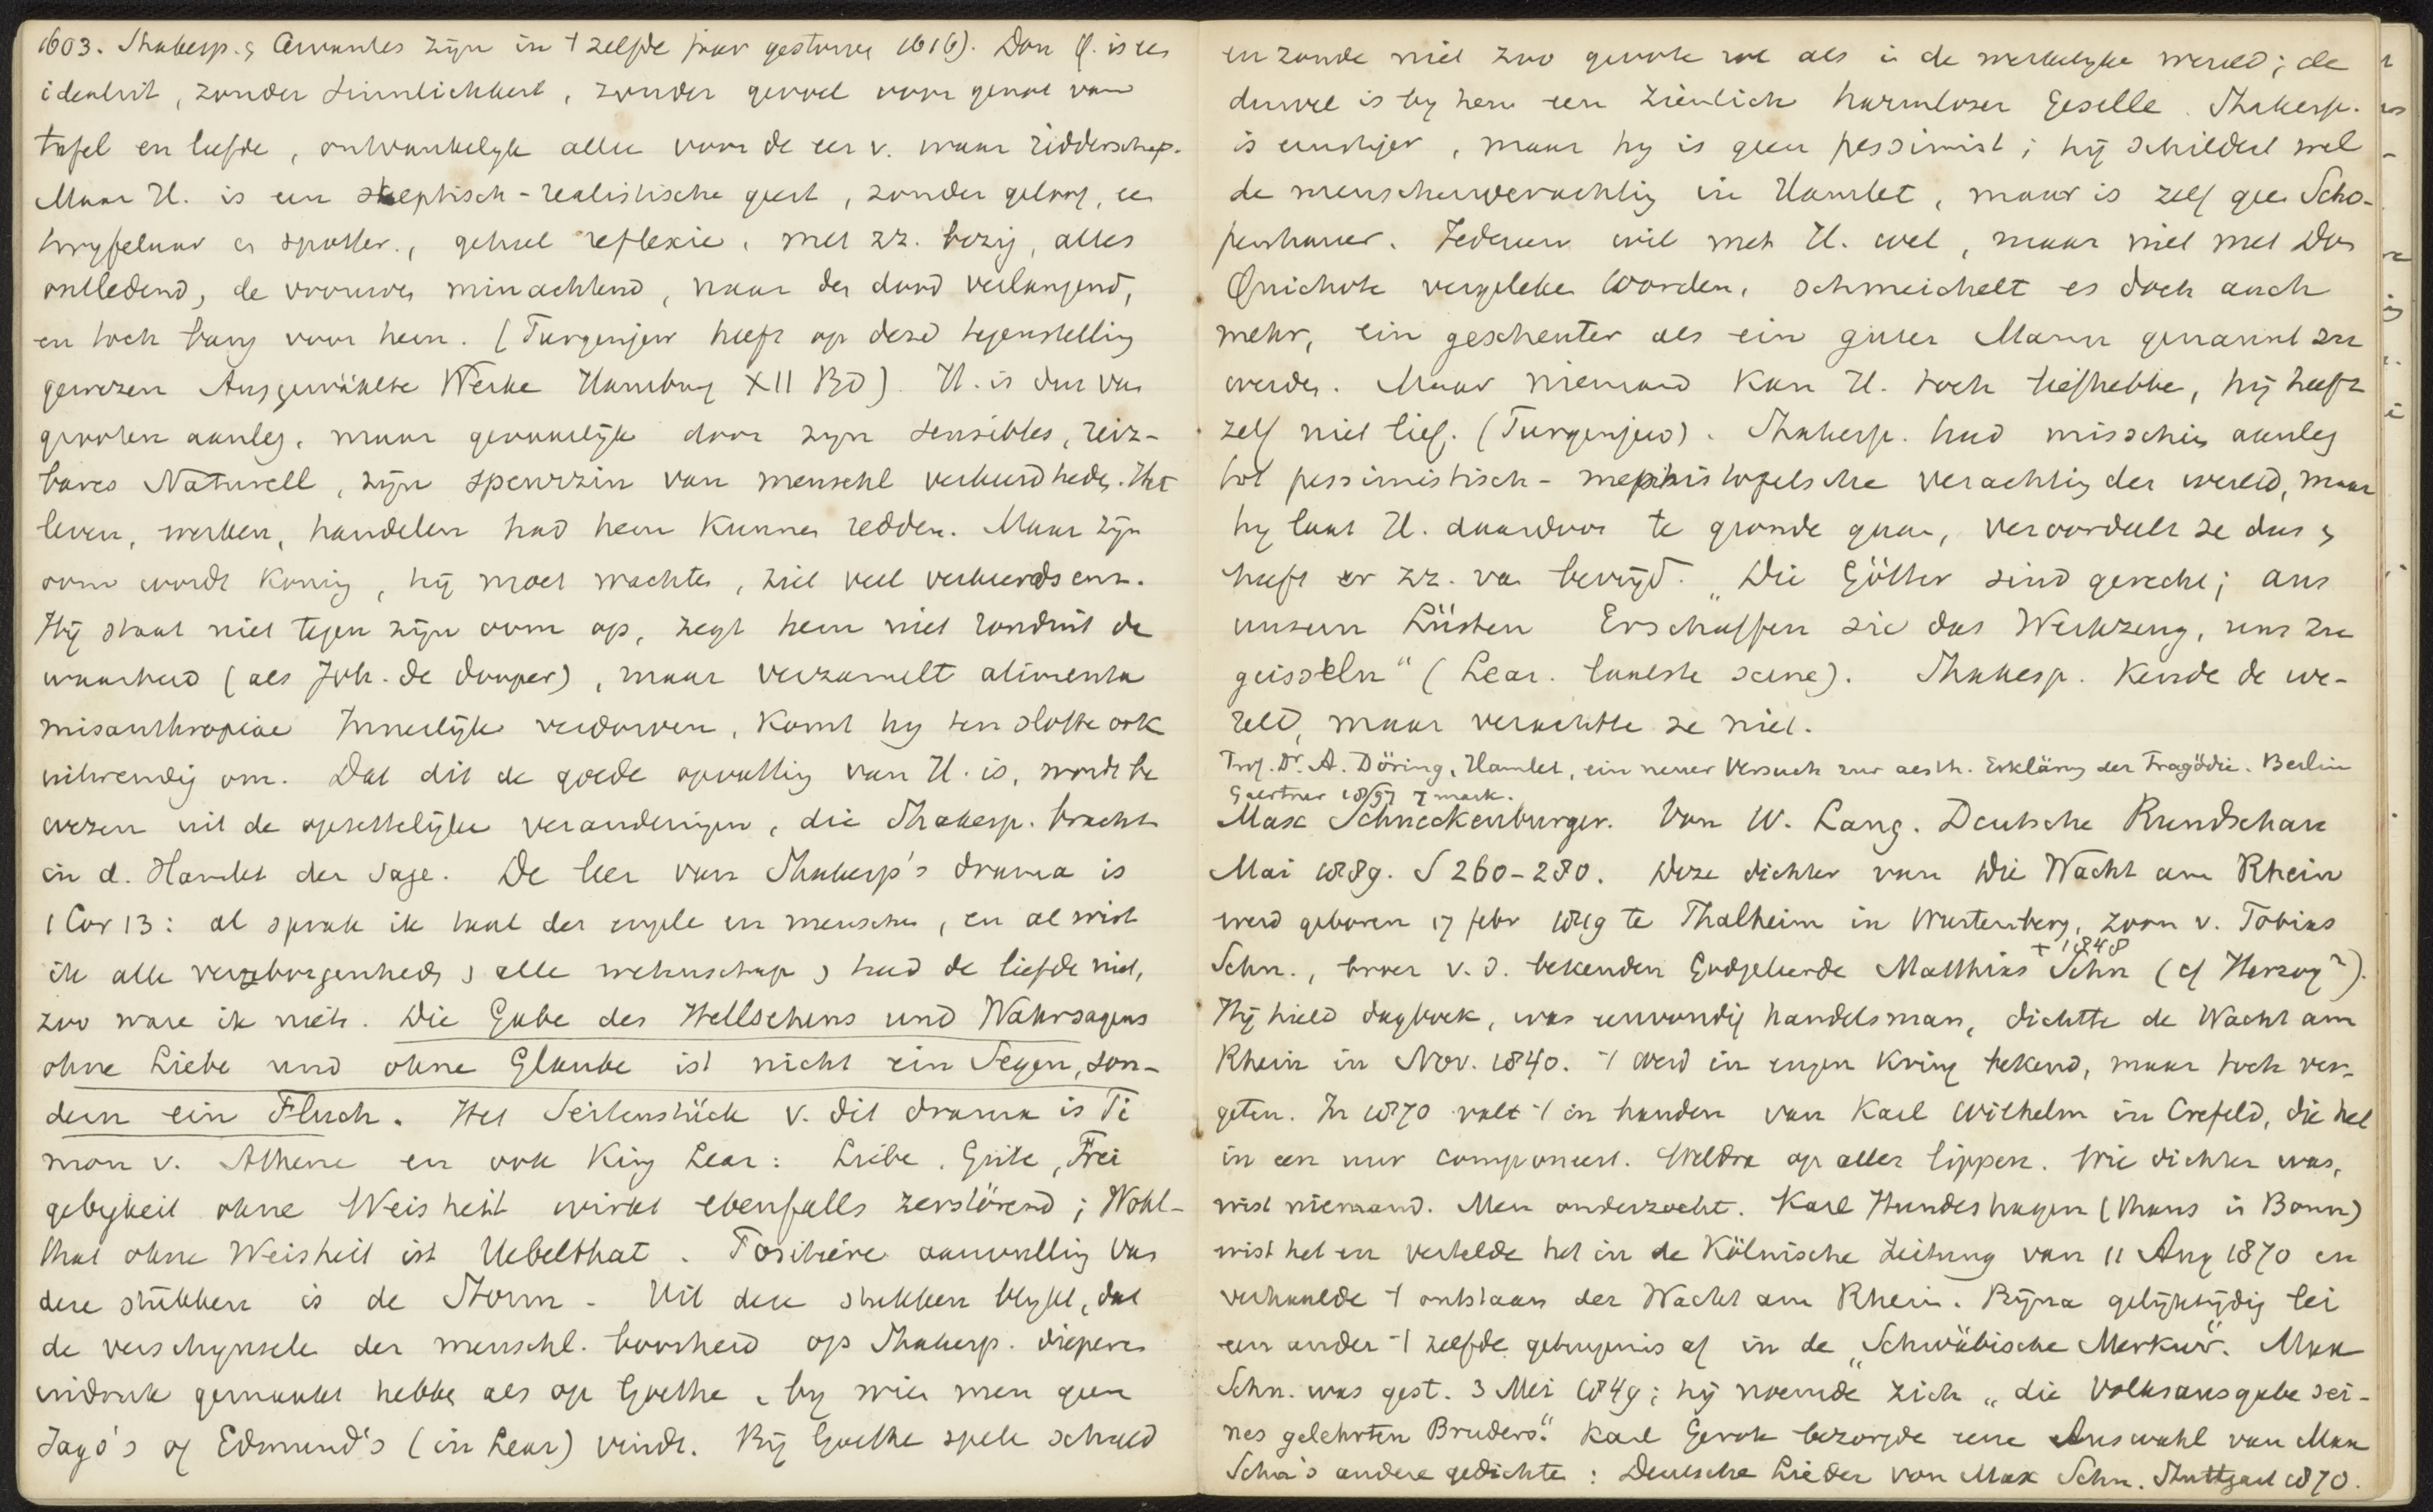 1603. Shakesp. & Cervantes zijn in 't zelfde jaar gestorven 1616). Don Q. is een
idealist, zonder Sinnlichkeit, zonder gevoel voor genot van
tafel en liefde, ontvankelyk alleen voor de eer v. waar ridderschap.
Maar H. is een skeptisch-realistische geest, zonder geloof, een
twyfelaar en spotter, geheel reflexie, met zz. bezig, alles
ontledend, de vrouwen minachtend, naar den dood verlangend,
en toch bang voor hem. (Turgenjew heeft op deze tegenstelling
gewezen Ausgewählte Werke Hamburg XII BD). H. is dus van
grooten aanleg, maar gevaarlijk door zyn sensibles, reiz-
bares Naturell, zijn speurzin van menschl verkeerdheden. Het
leven, werken, handelen had hem kunnen redden. Maar zijn
oom wordt koning, hij moet wachten, ziet veel verkeerds enz.
Hij staat niet tegen zijn oom op, zegt hem niet ronduit de
waarheid (als Joh. de dooper), maar verzamelt alimenta
misanthropiae Innerlijk verdorven, komt hy ten slotte ook
uitwendig om. Dat dit de goede opvatting van H. is, wordt be
wezen uit de opzettelijke veranderingen, die Shakesp. bracht
in d. Hamlet der sage. De leer van Shakesp's drama is
1 Cor 13: al sprak ik taal der engele en menschen, en al wist
ik alle verborgenheds & alle wetenschap & had de liefde niet,
zoo ware ik niets. Die Gabe des Hellsehens und Wahrsagens
ohne Liebe und ohne Glaube ist nicht ein Segen, son-
dern ein Fluch. Het Seitenstück v. dit drama is Ti
mon v. Athene en ook King Lear: Liebe, Güte, Frei
gebigkeit ohne Weisheit wirkt ebenfalls zerstörend; Wohl-
that ohne Weisheit ist Uebelthat. Positieve aanvulling van
deze stukken is de Storm. Uit deze stukken blykt, dat
de verschynsele der menschl. boosheid op Shakesp. dieperen
indruk gemaakt hebbe als op Goethe, by wien men geen
Jago's of Edmund's (in Lear) vindt. Bij Goethe spele schuld
en zonde niet zoo groote rol als in de werkelyke wereld; de
duivel is by hem een ziemlich harmloser Geselle. Shakesp.
is ernstiger, maar hy is geen pessimist; hij schildert wel
de menschenverachting in Hamlet, maar is zelf geen Scho-
penhauer. Iedereen wil met H. wel, maar niet met Don
Quichote vergeleke worden, schmeichelt es doch auch
mehr, ein gescheuter als ein guter Mann genannt zu
werden. Maar niemand kan H. toch liefhebbe, hij heeft
zelf niet lief. (Turgenjew). Shakesp. had misschien aanleg
tot pessimistisch-mephistofelsche verachting der wereld, maar
hy laat H. daardoor te gronde gaan, veroordeelt ze dus &
heeft er zz. van bevrijd. „Die Götter sind gerecht; aus
unsern Lüsten Erschaffen sie das Werkzeug, uns zu
geisseln" (Lear. laatste scene). Shakesp. kende de we-
reld, maar verachtte ze niet.
Prof. Dr. A. Döring, Hamlet, ein neuer Versuch zur aesth. Erklärung der Tragödie. Berlin
Gaertner 1897 7 mark.
Max Schneckenburger. Von W. Lang. Deutsche Rundschau
Mai 1889. S 260-280. Deze dichter van Die Wacht am Rhein
werd geboren 17 febr 1819 te Thalheim in Wurtemberg, zoon v. Tobias
Schn., broer v. d. bekenden Godgeleerde Matthias Schn (cf Herzog²).
† 1848
Hij hield dagboek, was eenvoudig handelsman, dichtte de Wacht am
Rhein in Nov. 1840. 't werd in engen kring bekend, maar toch ver-
geten. In 1870 valt 't in handen van Karl Wilhelm in Crefeld, die het
in een uur componeert. Weldra op aller lippen. Wie dichter was,
wist niemand. Men onderzocht. Karl Hundeshagen (thans in Bonn)
wist het en vertelde het in de Kölnische Zeitung van 11 Aug 1870 en
verhaalde 't ontstaan der Wacht am Rhein. Bijna gelijktijdig lei
een ander 't zelfde getuigenis af in de „Schwäbische Merkur". Max
Schn. was gest. 3 Mei 1849; hij noemde zich „die Volksausgabe sei-
nes gelehrten Bruders." Karl Gerok bezorgde eene Auswahl van Max
Schn's andere gedichte: Deutsche Lieder von Max Schn. Stuttgart 1870.